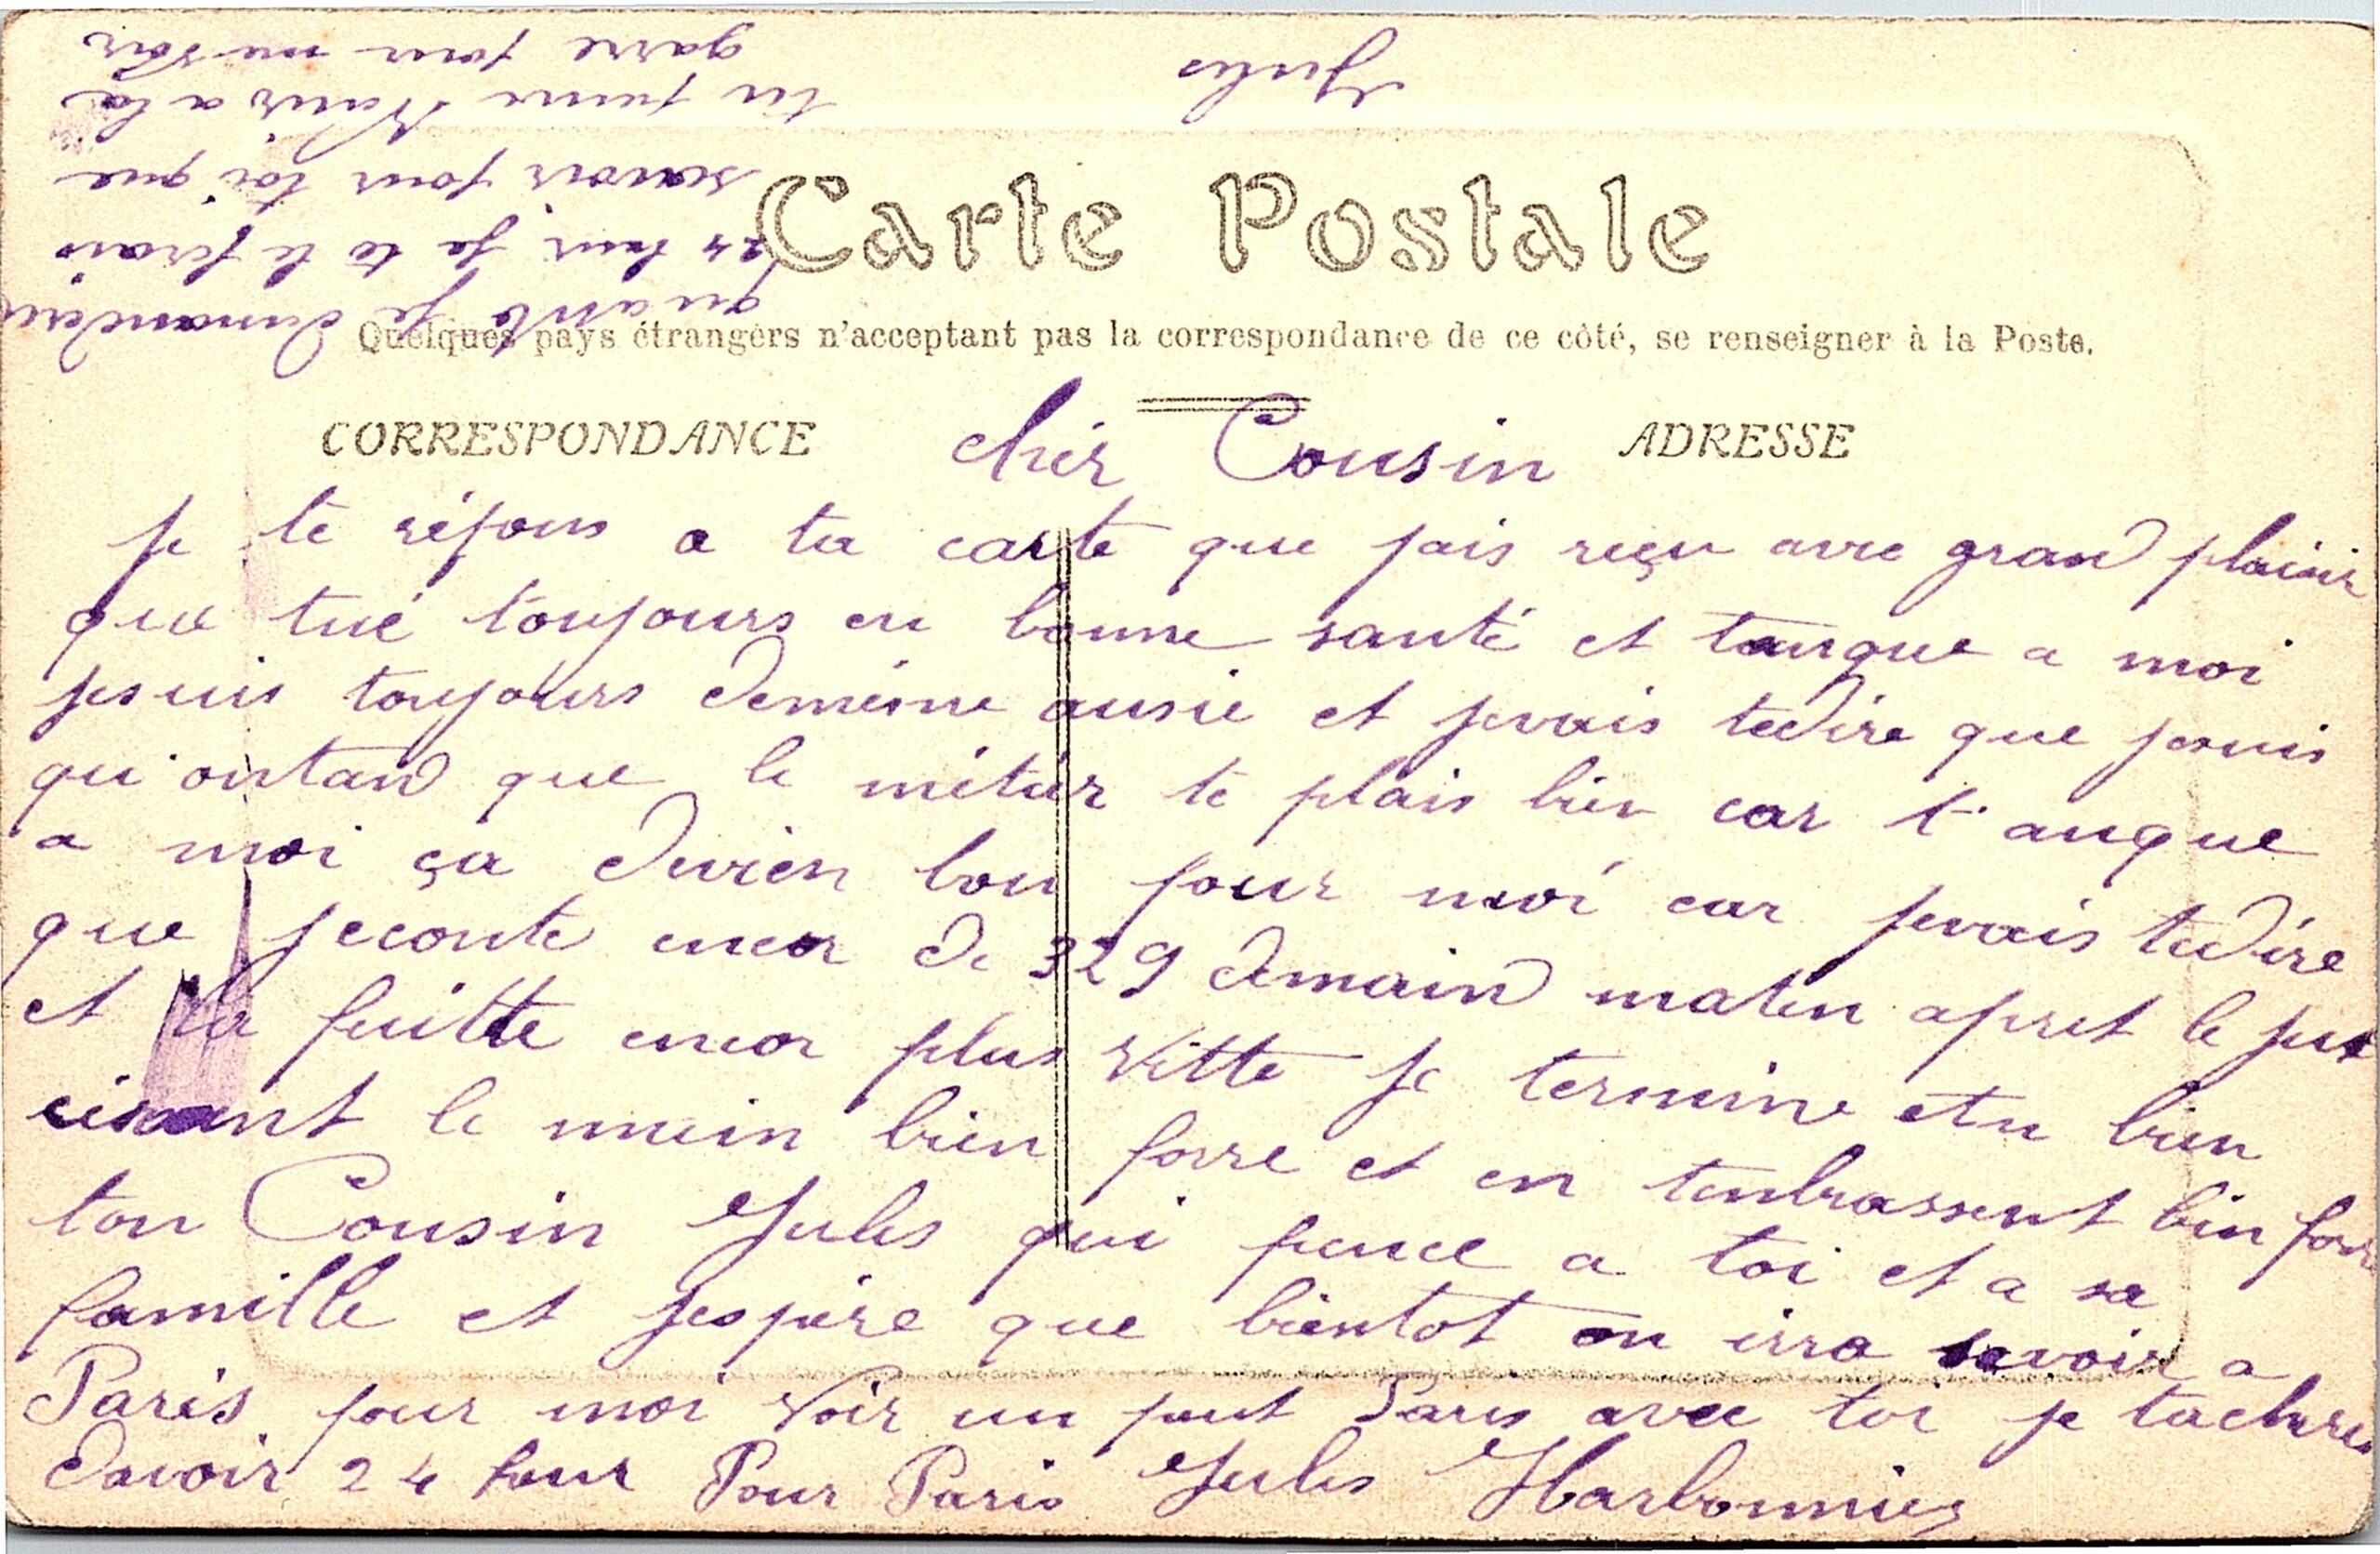 Carte Postale
Quelques pays étrangers n'acceptant pas la correspondance de ce côté, se renseigner à la Poste.
CORRESPONDANCE
ADRESSE
cher Cousin
Je te répons a ta carte que jais reçu avec grand plaisir
que tué toujours en bonne santé et tanque a moi
jesuis toujours deméme ausie et jevais tedire que jesuis
qu'ontand que le métier te plais bien car t'anque
a moi ça devien bon pour moi car jevais tedire
que jeconte encor de 329 demain matin apret le jus
et la fuitte encor plus vitte je termine etn bien
le main bien forre et en tenbrassent bien forre
ton Cousin Jules qui pence a toi et a sa
famille et jespère que bientot on irra savoir a
Paris pour moi voir un peut Paris avec toi je tacherés
davoir 24 heur Pour Paris Jules Harbonnier
quants je demanderai
24 heur je te le ferais
savoir pour toi que
tu puise venir a la
garre pour me voir
Jules